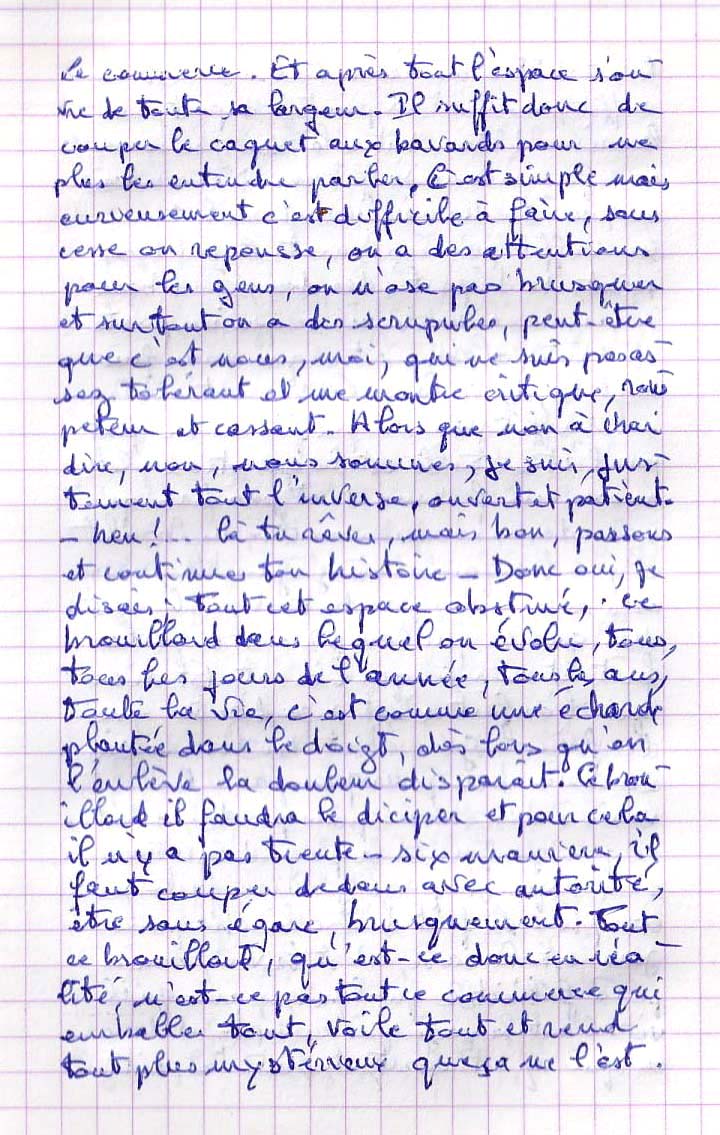 le commerce. Et après tout l'espace s'ou-
vre de toute sa largeur. Il suffit donc de
couper le caquet aux bavards pour ne
plus les entendre parler, C'est simple mais
curieusement c'est difficile à faire, sans
cesse on repousse, on a des attentions
pour les gens, on n'ose pas brusquer
et surtout on a des scrupules, peut-être
que c'est nous, moi, qui ne suis pas as-
sez tolérant et me montre critique, rous-
peteur et cassant. Alors que non à vrai
dire, non, nous sommes, je suis, jus-
tement tout l'inverse, ouvert et patient.
- heu!... là tu rêves, mais bon, passons
et continues ton histoire - Donc oui, je
disais; tout cet espace obstrué, ce
brouillard dans lequel on évolue, tous,
tous les jours de l'année, tous les ans,
toute la vie, c'est comme une écharde
plantée dans le doigt, dès lors qu'on
l'enlève la douleur disparait. Ce brou-
illard il faudra le diciper et pour cela
il n'y a pas trente-six manières, il
faut couper dedans avec autorité,
être sans égard, brusquement. Tout
ce brouillard, qu'est-ce donc en réa-
lité, n'est-ce pas tout ce commerce qui
emballe tout, voile tout et rend
tout plus mystérieux que ça ne l'est.